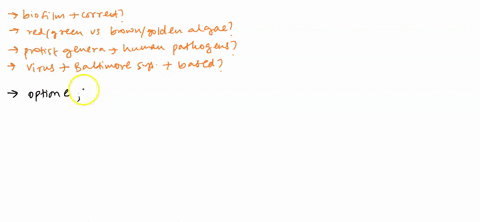 → biofilm + correct?
→ red/green vs brown/golden algae?
→ protist genera → human pathogens?
→ virus + Baltimore sys. + based?
→ option e ;